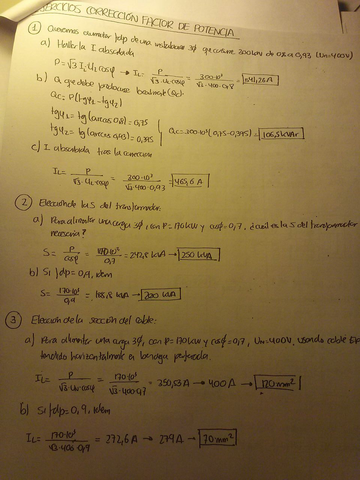 EJERCICIOS CORRECCIÓN FACTOR DE POTENCIA
① Queremos aumentar fdp de una instalación 3φ que consume 300kW de 0,8 a 0,93 (Un=400V)
a) Hallar la I absorbida
P = √3 IL·UL·cosφ → IL = P / √3·UL·cosφ = 300·10³ / √3·400·0,8 = 541,26A
b) Q que debe producirse (Qc)
Qc = P(tgφ1 - tgφ2)
tgφ1 = tg(arcos 0,8) = 0,75
tgφ2 = tg(arcos 0,93) = 0,395
Qc = 300·10³(0,75-0,395) = 106,5 kVAr
c) I absorbida tras la corrección
IL = P / √3·UL·cosφ = 300·10³ / √3·400·0,93 = 465,6 A
② Elección de la S del transformador
a) Para alimentar una carga 3φ, con P=170kW y cosφ=0,7, ¿cuál es la S del transformador
necesaria?
S = P / cosφ = 170·10³ / 0,7 = 242,8 kVA → 250 kVA
b) Si fdp = 0,9, idem
S = 170·10³ / 0,9 = 188,8 kVA → 200 kVA
③ Elección de la sección del cable:
a) Para alimentar una carga 3φ, con P=170kW y cosφ=0,7, Un=400V, usando cable
tendido horizontalmente en bandeja perforada.
IL = P / √3·UL·cosφ = 170·10³ / √3·400·0,7 = 350,53A → 400A → 120mm²
b) Si fdp = 0,9, idem
IL = 170·10³ / √3·400·0,9 = 272,6A → 279A → 70mm²